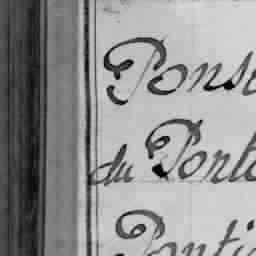 Pons
du Port
Ponti